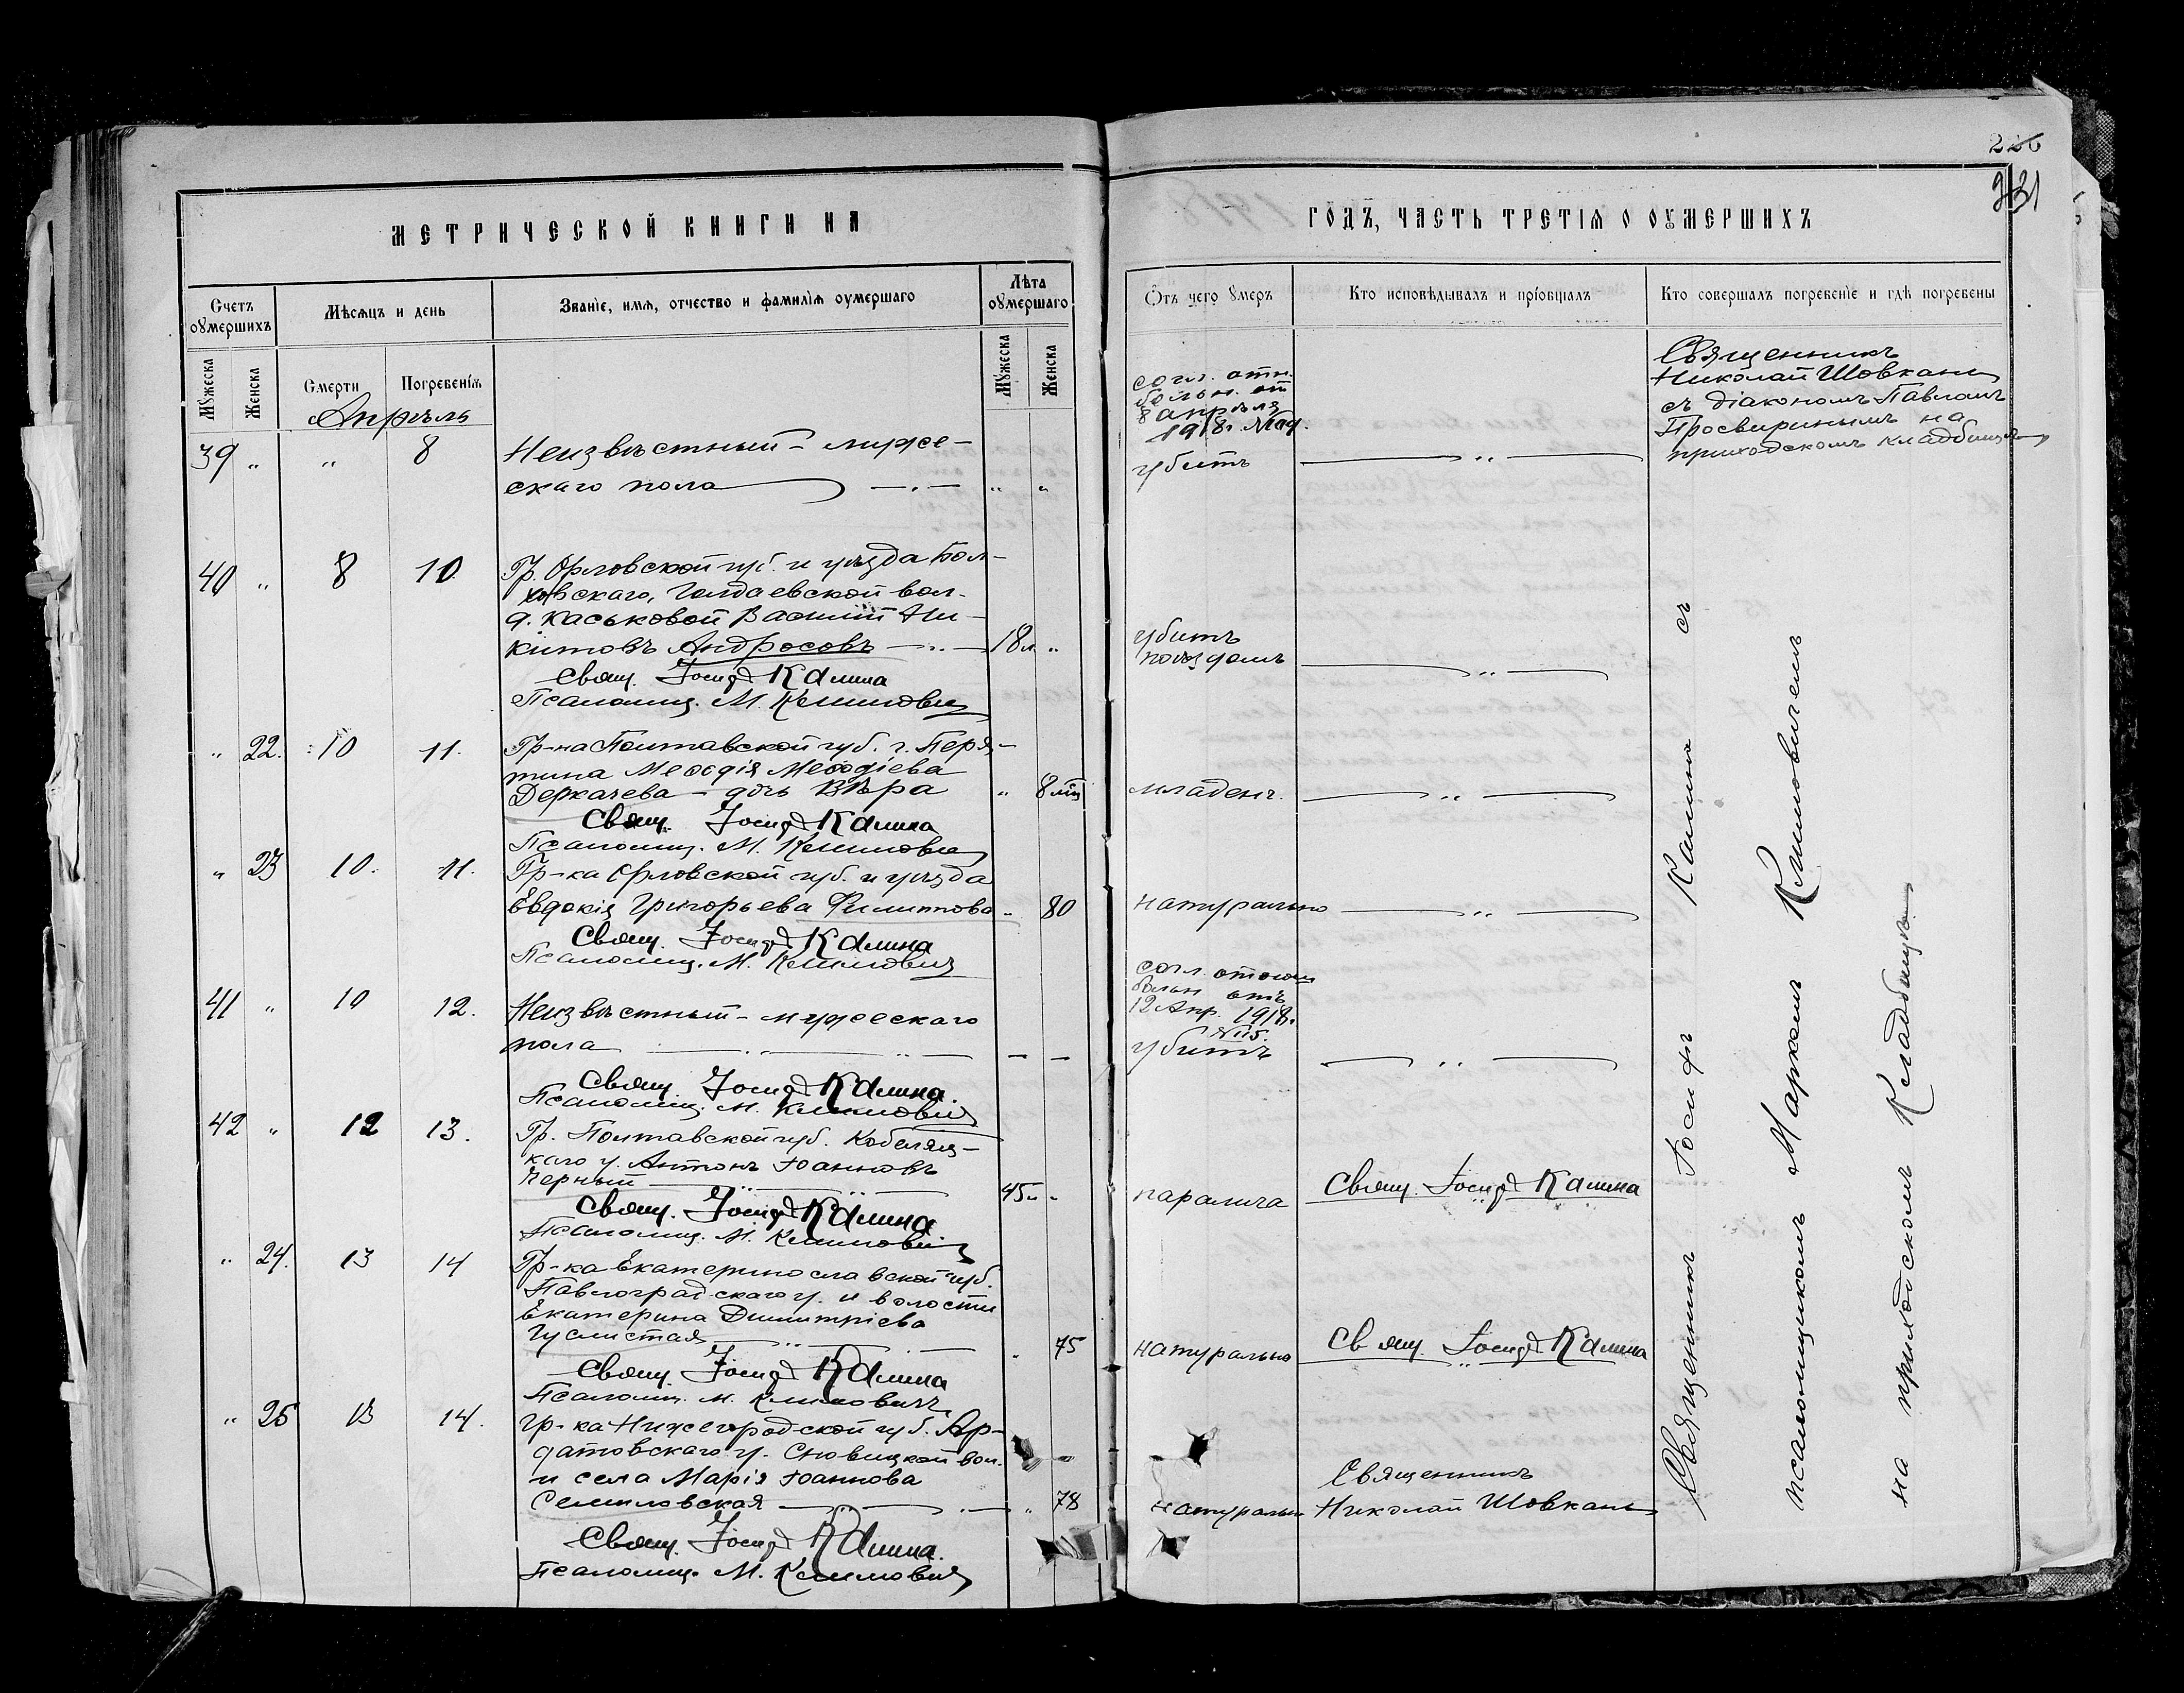 226
231
МЕТРИЧЕСКОЙ КНИГИ НА
ГОДЪ, ЧАСТЬ ТРЕТІѦ О ОУМЕРШИХЪ
Счетъ оумершихъ
Мѣсѧцъ и день
Званіе, имѧ, отчество и фамиліѧ оумершаго
Лѣта оумершаго
Ѿтъ чего оумеръ
Кто исповѣдывалъ и пріобщалъ
Кто совершалъ погребеніе и гдѣ погребены
Мужеска
Женска
Смерти
Погребеніѧ
Мужеска
Женска
Апрѣль
39 " " 8 Неизвѣстный - муже-
скаго пола " "
согл. отн.
больн. от
8 апрѣля
1918г.
убитъ "
Священникъ
Николай Шовкань
съ діакономъ Павломъ
Просвиринымъ на
приходскомъ кладбищѣ
40 " 8 10. Гр. Орловской губ. и уѣзда Бол-
ховскаго, Голдаевской вол.
д. Каськовой Василій Ни-
китовъ Андросовъ 18 л. "
убитъ
поѣздомъ "
Свящ. Іосифъ Калина
Псаломщ. М. Климовичъ
" 22. 10 11. Гр-на Полтавской губ. г. Пиря-
тина Меѳодія Меѳодіева
Деркачева - дочь Вѣра " 8 мѣс
младенч. "
Свящ. Іосифъ Калина
Псаломщ. М. Климовичъ
" 23 10. 11. Гр-ка Орловской губ. и уѣзда
Евдокія Григорьева Филиппова " 80
натурально "
Свящ. Іосифъ Калина
Псаломщ. М. Климовичъ
41 " 10 12. Неизвѣстный - мужескаго
пола
согл. отнош
больн отъ
12 Апр. 1918г.
№115.
убитъ "
Свящ. Іосифъ Калина.
Псаломщ. М. Климовичъ
42 " 12 13. Гр. Полтавской губ. Кобеляц-
каго у. Антонъ Іоанновъ
Черный 45 л "
паралича Свящ. Іосифъ Калина
Свящ. Іосифъ Калина
Псаломщ. М. Климовичъ
" 24. 13 14 Гр-ка Екатеринославской губ.
Павлоградскаго у. и волости
Екатерина Димитріева
Гуслистая " 75
натурально Свящ. Іосифъ Калина
Свящ. Іосифъ Калина
Псаломщ. М. Климовичъ
" 25 13 14. Гр-ка Нижегородской губ. Ар-
датовскаго у. вол.
и села Марія Іоаннова
Семиловская " 78
натурально Священникъ
Николай Шовкань
Свящ. Іосифъ Калина.
Псаломщ. М. Климовичъ
Священникъ Іосифъ Калина съ
псаломщикомъ Маркомъ Климовичемъ
на приходскомъ Кладбищѣ